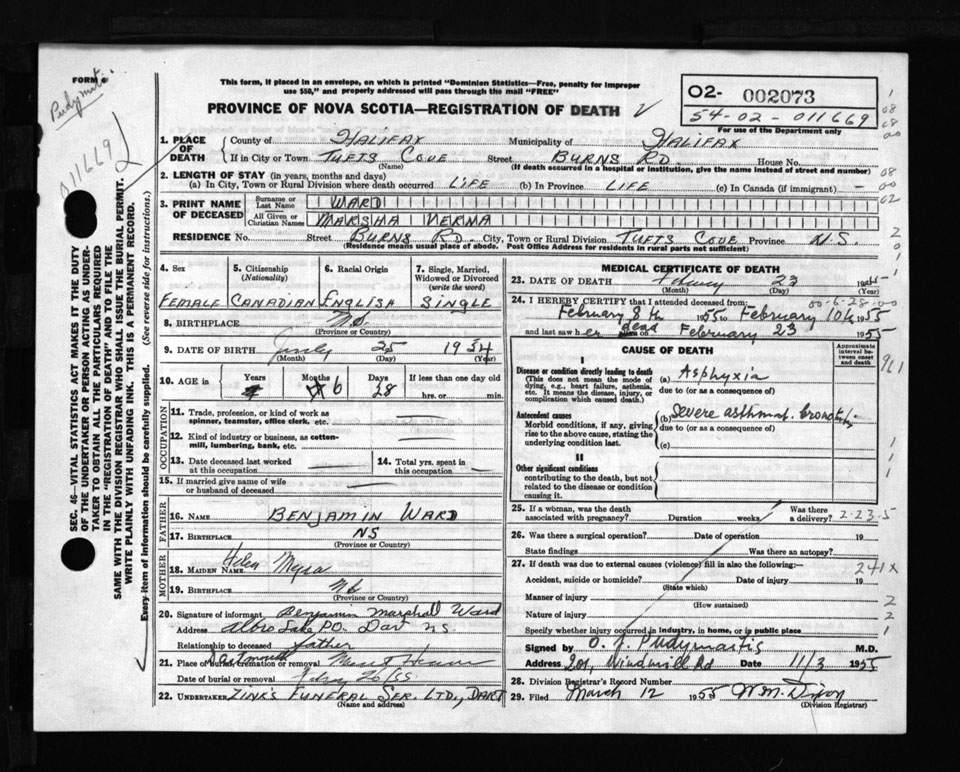 FORM
Pudymaitis
011669
This form, if placed in an envelope, on which is printed "Dominion Statistics—Free, penalty for improper
use $50," and properly addressed will pass through the mail "FREE"
PROVINCE OF NOVA SCOTIA—REGISTRATION OF DEATH
02- 002073
54-02-011669
For use of the Department only
1. PLACE OF DEATH
County of HALIFAX Municipality of HALIFAX
If in City or Town TUFTS COVE Street BURNS RD. House No.
(Name) (If death occurred in a hospital or institution, give the name instead of street and number)
2. LENGTH OF STAY (in years, months and days)
(a) In City, Town or Rural Division where death occurred LIFE (b) In Province LIFE (c) In Canada (if immigrant) —
3. PRINT NAME OF DECEASED
Surname or Last Name WARD
All Given or Christian Names MARSHA NERMA
RESIDENCE No. Street BURNS RD. City, Town or Rural Division TUFTS COVE Province N.S.
(Residence means usual place of abode. Post Office Address for residents in rural parts not sufficient)
4. Sex 5. Citizenship (Nationality) 6. Racial Origin 7. Single, Married, Widowed or Divorced (write the word)
FEMALE CANADIAN ENGLISH SINGLE
8. BIRTHPLACE N.S.
(Province or Country)
9. DATE OF BIRTH July 25 1954
(Month) (Day) (Year)
10. AGE in Years Months 6 Days 28 If less than one day old hrs. or min.
OCCUPATION
11. Trade, profession, or kind of work as spinner, teamster, office clerk, etc.
12. Kind of industry or business, as cotton-mill, lumbering, bank, etc.
13. Date deceased last worked at this occupation 14. Total yrs. spent in this occupation
15. If married give name of wife or husband of deceased
FATHER
16. NAME BENJAMIN WARD
17. BIRTHPLACE NS
(Province or Country)
MOTHER
18. MAIDEN NAME Helen Myra
19. BIRTHPLACE
(Province or Country)
20. Signature of informant Benjamin Marshall Ward
Address Albro Lake P.O. Dart NS.
Relationship to deceased father
21. Place of burial cremation or removal Dartmouth Mount Hermon
Date of burial or removal Feby 26/55
22. UNDERTAKER ZINK'S FUNERAL SER. LTD., DART
(Name and address)
MEDICAL CERTIFICATE OF DEATH
23. DATE OF DEATH February 23 1955
(Month) (Day) (Year)
24. I HEREBY CERTIFY that I attended deceased from: 00-6-28-00
February 8th 1955 to February 10th 1955
and last saw her dead on February 23 1955
CAUSE OF DEATH
Approximate interval between onset and death
I
Disease or condition directly leading to death (a) Asphyxia
(This does not mean the mode of dying, e.g., heart failure, asthenia, etc. It means the disease, injury, or complication which caused death.)
due to (or as a consequence of)
Antecedent causes (b) Severe asthmat. bronchitis
Morbid conditions, if any, giving rise to the above cause, stating the underlying condition last.
due to (or as a consequence of)
(c)
II
Other significant conditions
contributing to the death, but not related to the disease or condition causing it.
25. If a woman, was the death associated with pregnancy? Duration weeks Was there a delivery? 2-23-5
26. Was there a surgical operation? Date of operation 19
State findings Was there an autopsy?
27. If death was due to external causes (violence) fill in also the following:— 241x
Accident, suicide or homicide? Date of injury 19
(State which)
Manner of injury
(How sustained)
Nature of injury
Specify whether injury occurred in industry, in home, or in public place
Signed by O. J. Pudymaitis M.D.
Address 201, Windmill Rd Date 11/3 1955
28. Division Registrar's Record Number
29. Filed March 12 1955 W.M. Dixon
(Division Registrar)
SEC. 46—VITAL STATISTICS ACT MAKES IT THE DUTY
OF THE UNDERTAKER OR PERSON ACTING AS UNDER-
TAKER TO OBTAIN ALL THE PARTICULARS REQUIRED
IN THE "REGISTRATION OF DEATH" AND TO FILE THE
SAME WITH THE DIVISION REGISTRAR WHO SHALL ISSUE THE BURIAL PERMIT.
WRITE PLAINLY WITH UNFADING INK. THIS IS A PERMANENT RECORD.
Every item of information should be carefully supplied. (See reverse side for instructions.)